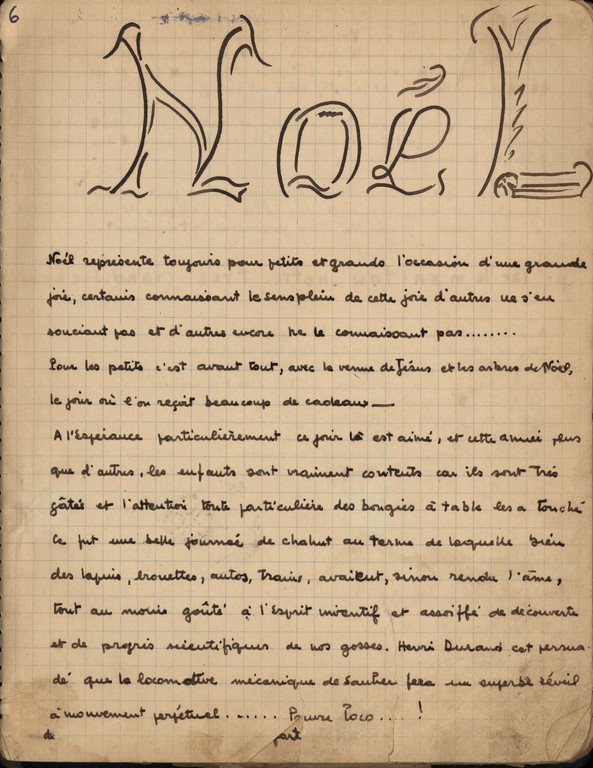 6
NOËL
Noël représente toujours pour petits et grands l'occasion d'une grande
joie, certains connaissant le sens plein de cette joie d'autres ne s'en
souciant pas et d'autres encore ne le connaissant pas........
Pour les petits c'est avant tout, avec la venue de Jésus et les arbres de Noël,
le jour où l'on reçoit beaucoup de cadeaux —
A l'Espérance particulièrement ce jour là est aimé, et cette année plus
que d'autres, les enfants sont vraiment contents car ils sont très
gâtés et l'attention toute particulière des bougies à table les a touché
Ce fut une belle journée de chahut au terme de laquelle bien
des lapins, brouettes, autos, trains, avaient, sinon rendu l'âme,
tout au moins goûté à l'Esprit inventif et assoiffé de découverte
et de progrès scientifiques de nos gosses. Henri Durand est persua-
dé que la locomotive mécanique de fera un superbe réveil
à mouvement perpétuel....... Pauvre Toco....!